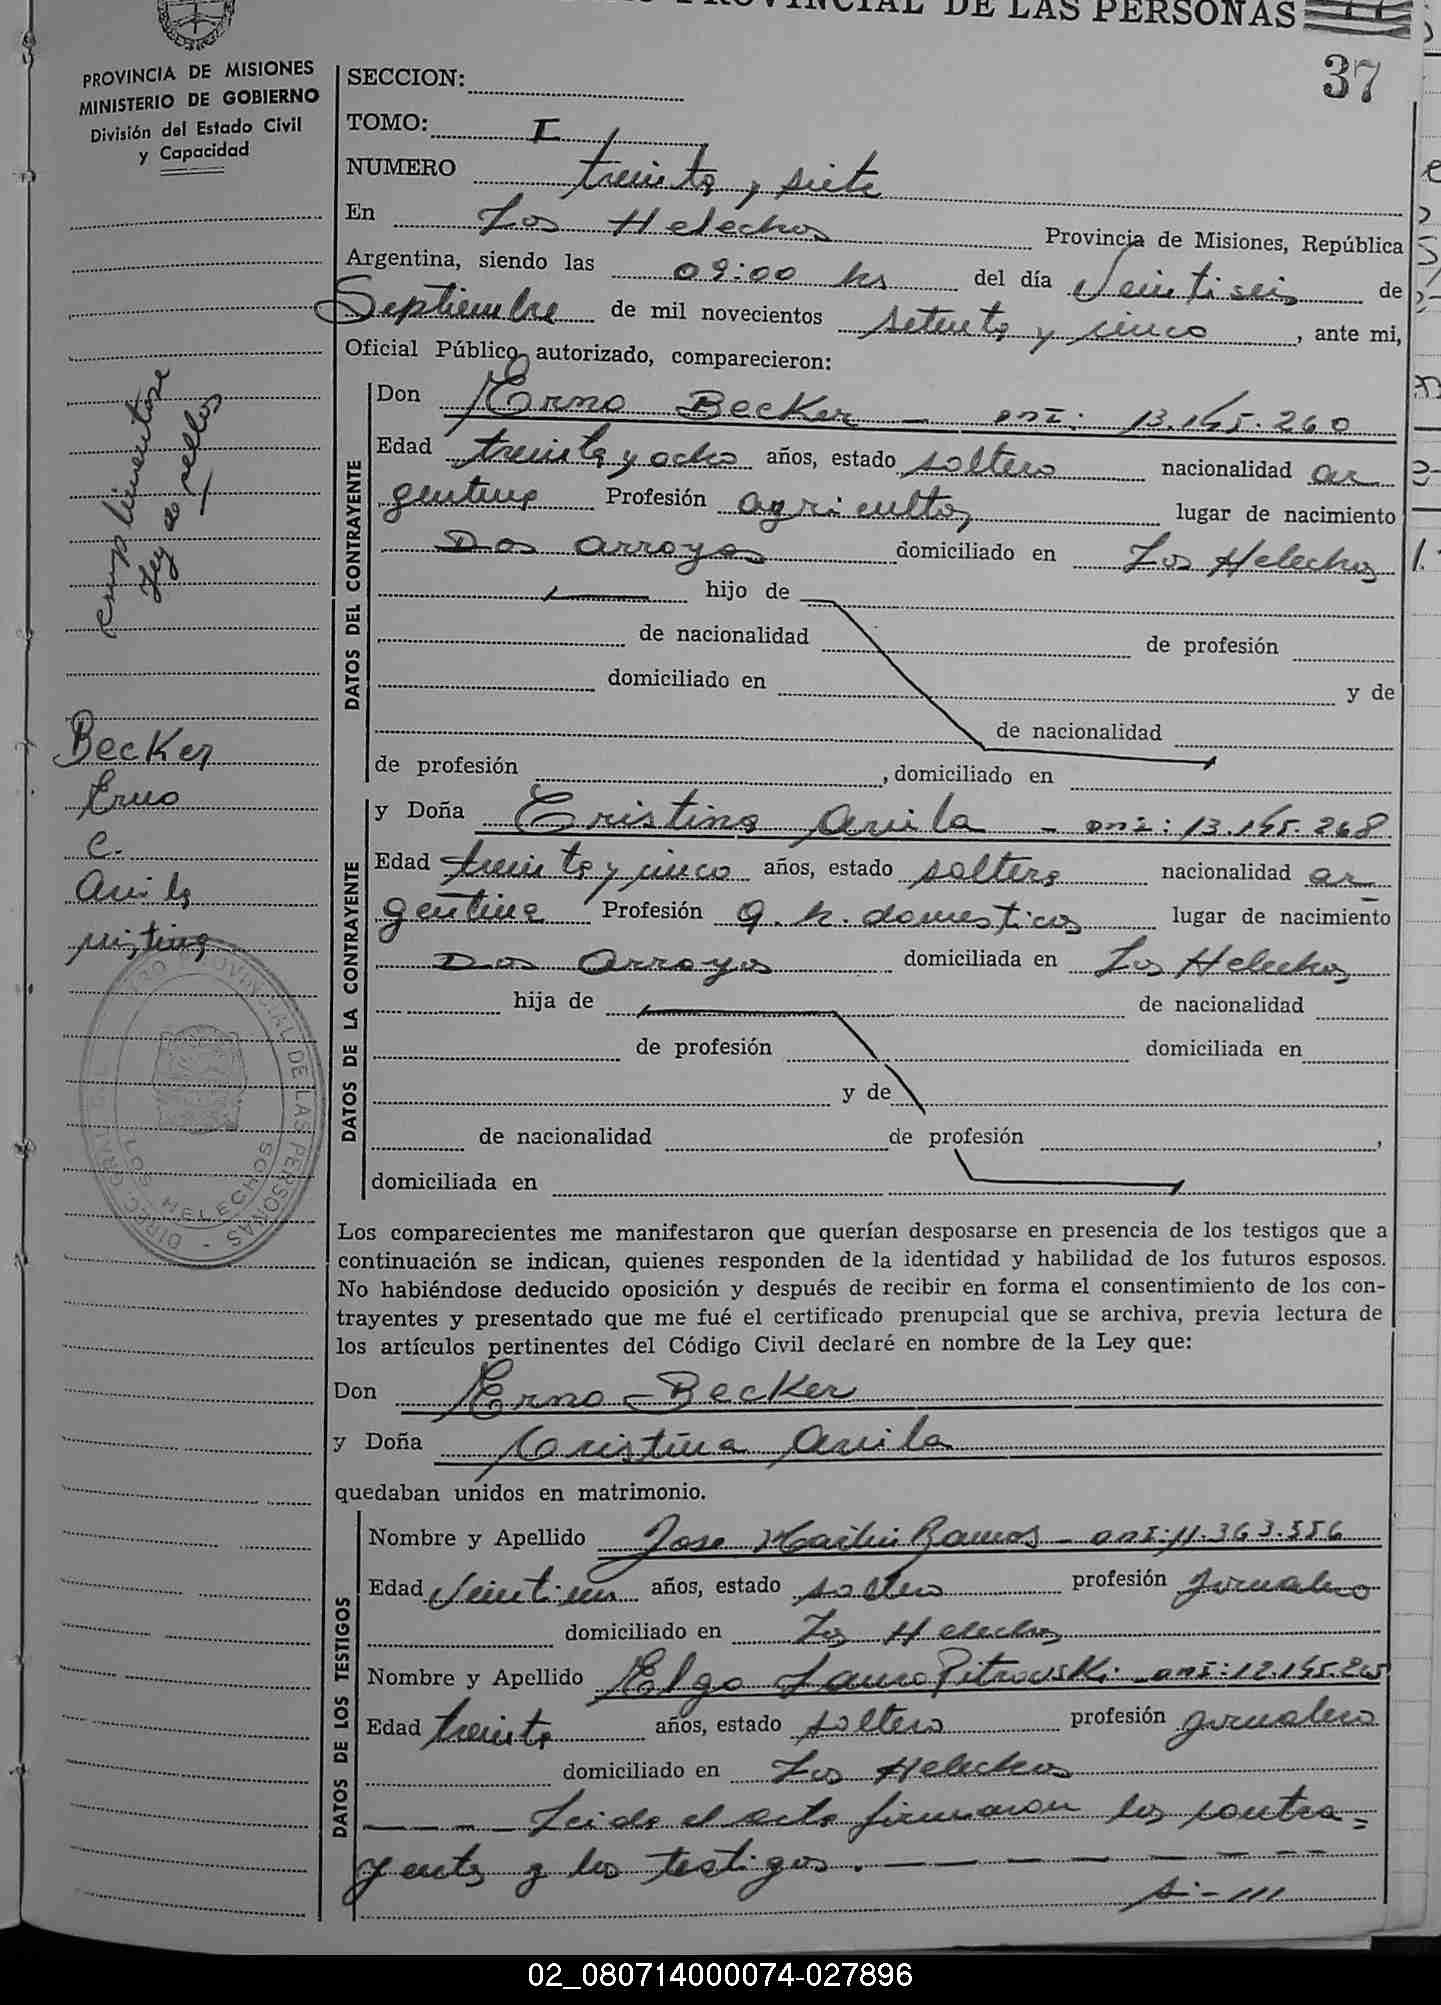 PROVINCIAL DE LAS PERSONAS
37
PROVINCIA DE MISIONES
MINISTERIO DE GOBIERNO
División del Estado Civil
y Capacidad
SECCION:
TOMO: I
NUMERO treinta y siete
En Los Helechos Provincia de Misiones, República
Argentina, siendo las 09:00 hs del día Veintiseis de
Septiembre de mil novecientos setenta y cinco, ante mi,
Oficial Público autorizado, comparecieron:
DATOS DEL CONTRAYENTE
Don Erno Becker - DNI: 13.145.260
Edad treinta y ocho años, estado soltero nacionalidad ar
gentina Profesión agricultor lugar de nacimiento
Dos Arroyos domiciliado en Los Helechos
hijo de
de nacionalidad de profesión
domiciliado en y de
de nacionalidad
de profesión , domiciliado en
DATOS DE LA CONTRAYENTE
y Doña Cristina Avila - DNI: 13.145.268
Edad treinta y cinco años, estado soltera nacionalidad ar
gentina Profesión q. h. domesticos lugar de nacimiento
Dos Arroyos domiciliada en Los Helechos
hija de de nacionalidad
de profesión domiciliada en
y de
de nacionalidad de profesión ,
domiciliada en
Los comparecientes me manifestaron que querían desposarse en presencia de los testigos que a
continuación se indican, quienes responden de la identidad y habilidad de los futuros esposos.
No habiéndose deducido oposición y después de recibir en forma el consentimiento de los con-
trayentes y presentado que me fué el certificado prenupcial que se archiva, previa lectura de
los artículos pertinentes del Código Civil declaré en nombre de la Ley que:
Don Erno - Becker
y Doña Cristina Avila
quedaban unidos en matrimonio.
DATOS DE LOS TESTIGOS
Nombre y Apellido Jose Ramos - DNI: 11.363.556
Edad Veintiun años, estado soltero profesión jornalero
domiciliado en Los Helechos
Nombre y Apellido Elgo Lauro Pitrouski - DNI:
Edad treinta años, estado soltero profesión jornalero
domiciliado en Los Helechos
---- Leida el acta firmaron los contra=
yentes y los testigos. - - - - - - -
s: - ///
cumplimentose
ley de sellos
Becker
Erno
c.
Avila
cristina
LOS HELECHOS
02_080714000074-027896